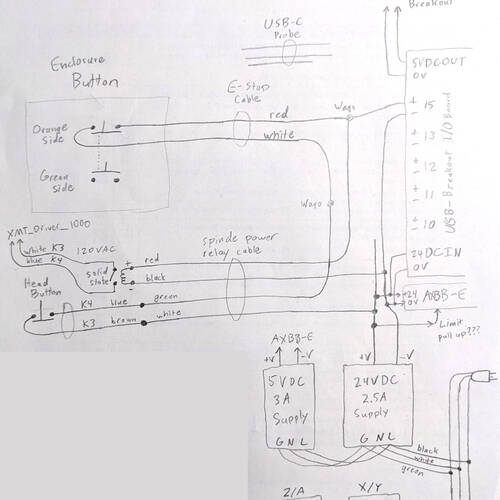 Breakout
USB-C
Probe
5VDCOUT
0V
Enclosure
Button
E-Stop
Cable
red
Wago
+ 15
-
Orange
side
white
+ 13
-
+ 12
-
Green
side
+ 11
-
+ 10
-
USB-Breakout I/O Board
Wago
XMT_Driver_1000
white K3
blue K4
120VAC
spindle power
relay cable
24DCIN
0V
solid
state
+
-
red
black
Head
Button
K4 blue
green
K3 brown
white
+24
0V
AXBB-E
Limit
pull up???
AXBB-E
+V
-V
+V
-V
5VDC
3A
Supply
24VDC
2.5A
Supply
G N L
G N L
black
white
green
Z/A
X/Y